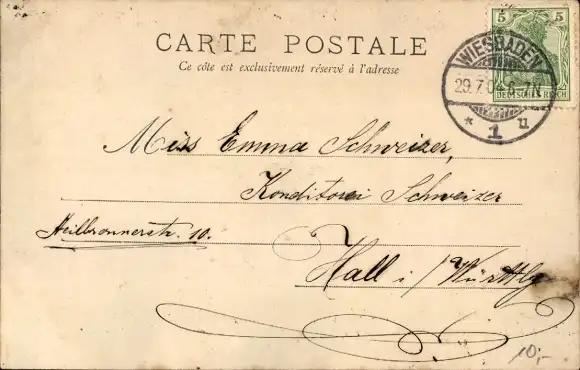 CARTE POSTALE
Ce côte est exclusivement réservé à l'adresse
5 5
DEUTSCHES REICH
WIESBADEN
29.7.04 6-7N
* 1 u
Miss Emma Schweizer,
Konditorei Schweizer
Heilbronnerstr. 10.
Hall i/Württbg
10,-